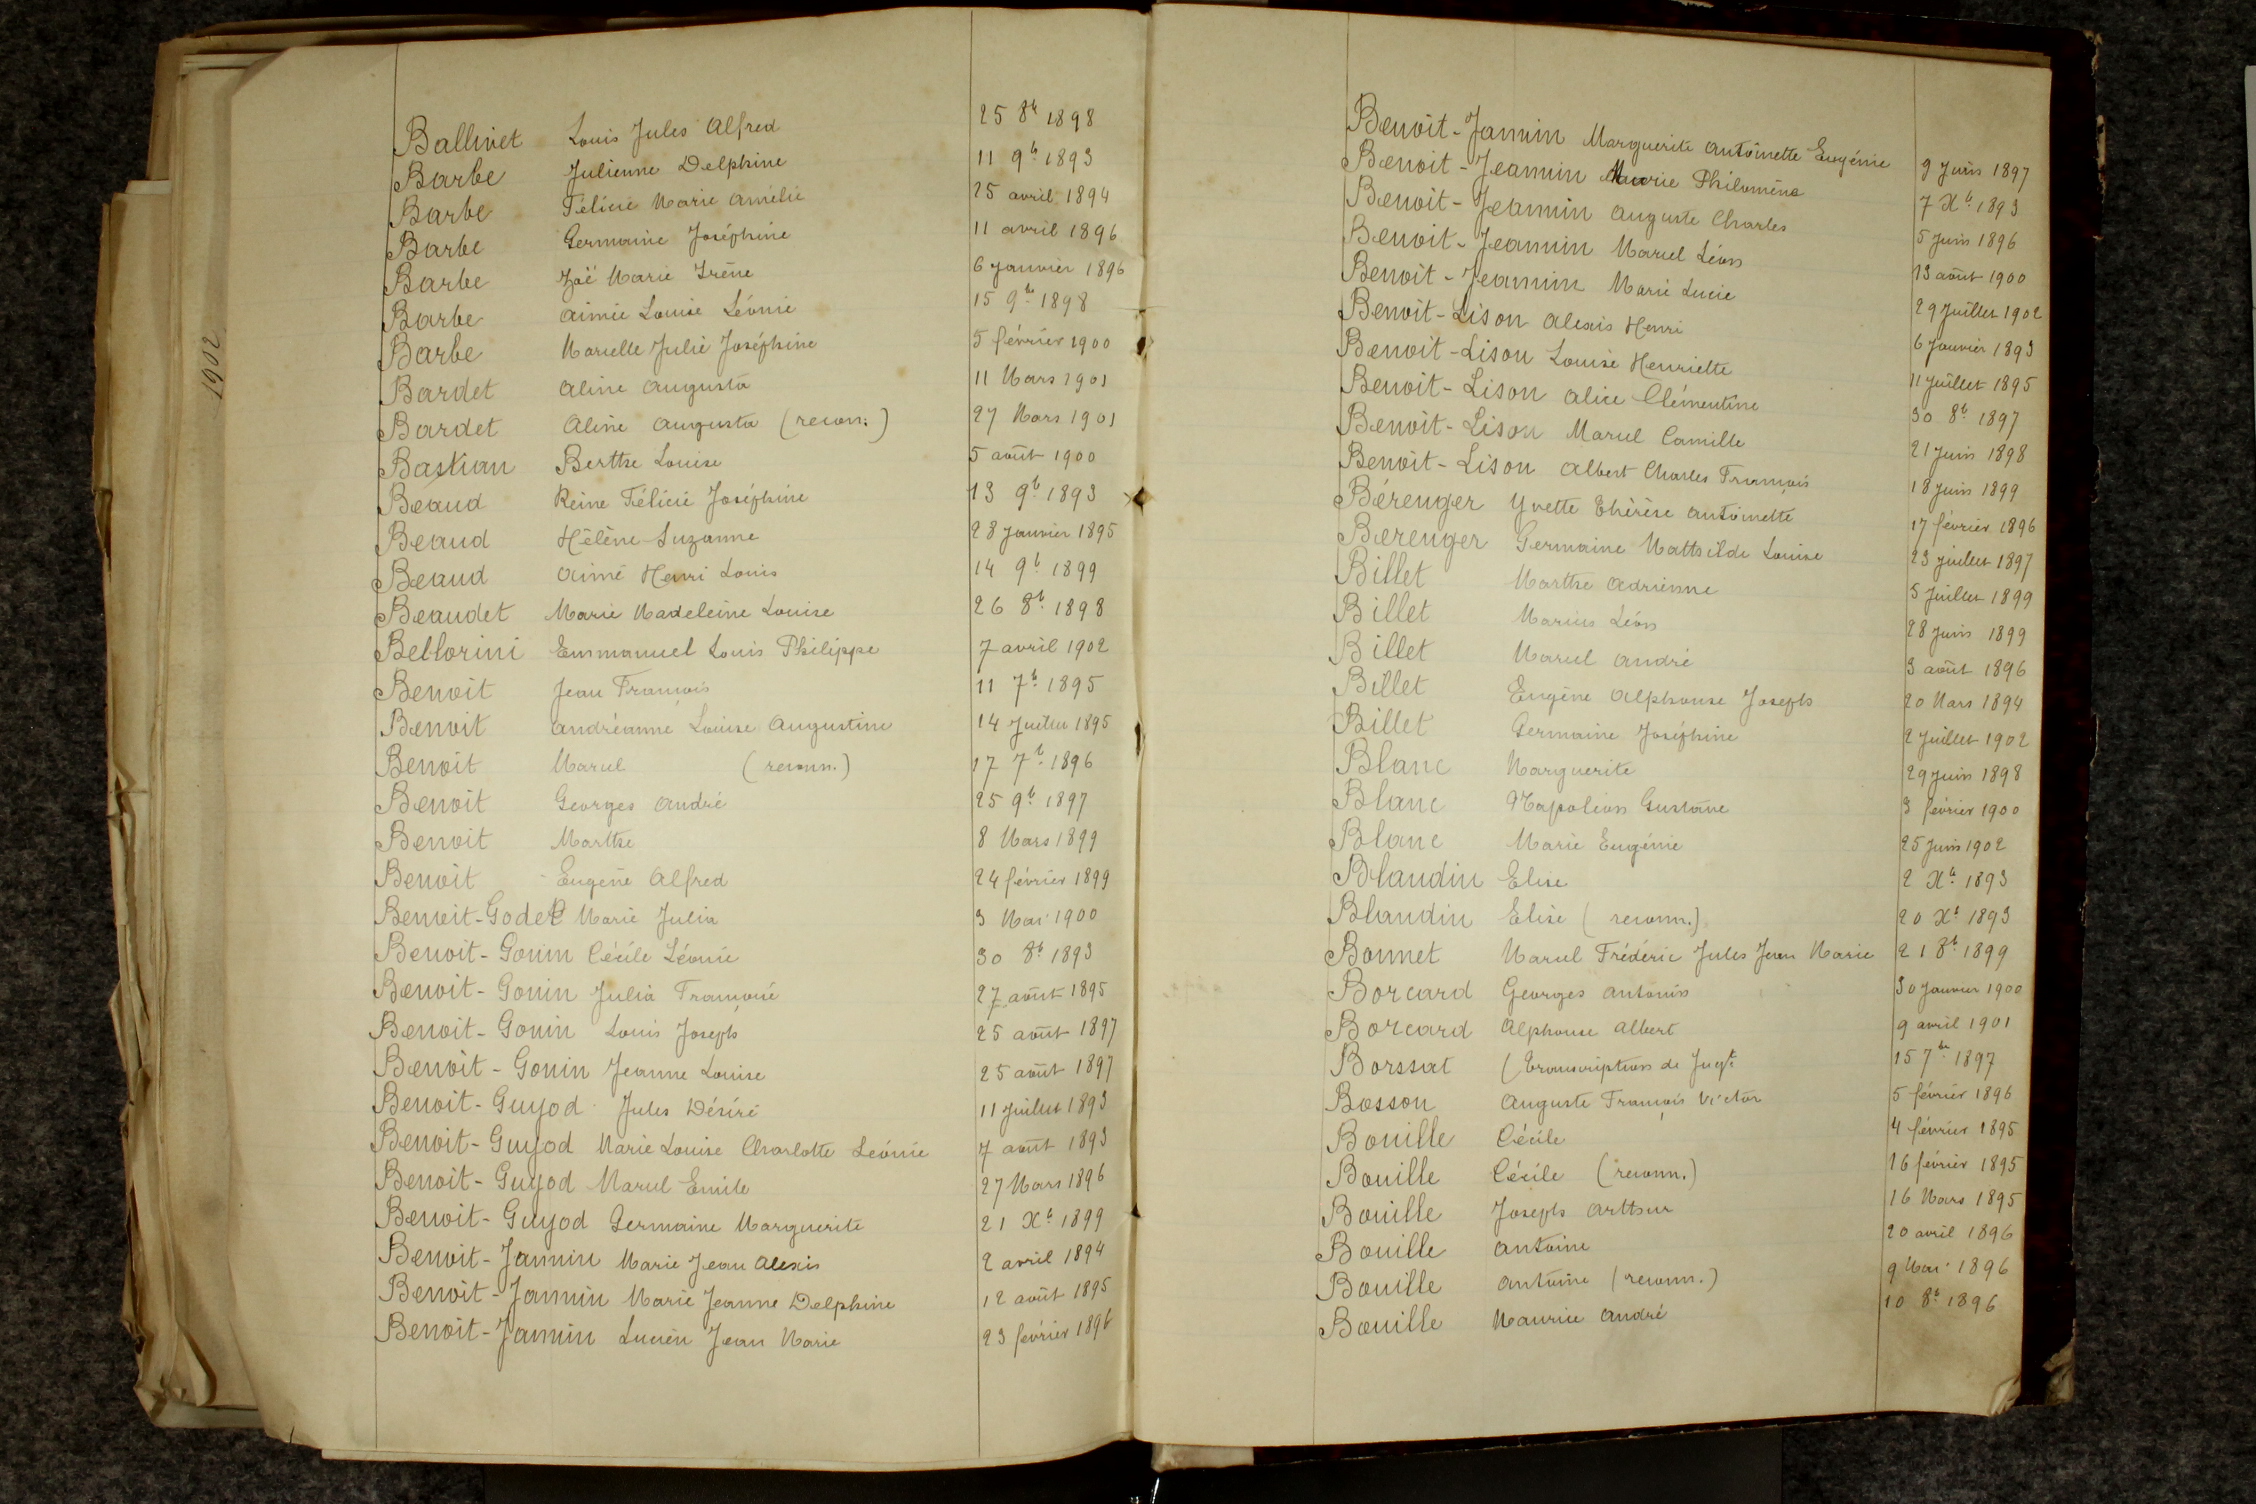 1902
Ballivet Louis Jules Alfred 25 8b 1898
Barbe Julienne Delphine 11 9b 1893
Barbe Félicie Marie Amélie 25 avril 1894
Barbe Germaine Joséphine 11 avril 1896
Barbe Zoë Marie Irène 6 Janvier 1896
Barbe Aimée Louise Léonie 15 9b 1898
Barbe Marielle Julie Joséphine 5 février 1900
Bardet Aline Augusta 11 Mars 1901
Bardet Aline Augusta (reconn.) 27 Mars 1901
Bastian Berthe Louise 5 août 1900
Beaud Reine Félicie Joséphine 13 9b 1893
Beaud Hélène Suzanne 28 Janvier 1895
Beaud Aimé Henri Louis 14 9b 1899
Beaudet Marie Madeleine Louise 26 8b 1898
Bellorini Emmanuel Louis Philippe 7 avril 1902
Benoit Jean François 11 7b 1895
Benoit Andréanne Louise Augustine 14 Juillet 1895
Benoit Marcel (reconn.) 17 7b 1896
Benoit Georges André 25 9b 1897
Benoit Marthe 8 Mars 1899
Benoit Eugène Alfred 24 février 1899
Benoit-Godet Marie Julia 3 Mai 1900
Benoit-Gonin Cécile Léonie 30 8b 1893
Benoit-Gonin Julia Françoise 27 août 1895
Benoit-Gonin Louis Joseph 25 août 1897
Benoit-Gonin Jeanne Louise 25 août 1897
Benoit-Guyod Jules Désiré 11 Juillet 1893
Benoit-Guyod Marie Louise Charlotte Léonie 7 août 1893
Benoit-Guyod Marcel Emile 27 Mars 1896
Benoit-Guyod Germaine Marguerite 21 Xb 1899
Benoit-Jannin Marie Jean Alexis 2 avril 1894
Benoit-Jannin Marie Jeanne Delphine 12 août 1895
Benoit-Jannin Lucien Jean Marie 23 février 1896
Benoit-Jannin Marguerite Antoinette Eugénie 9 Juin 1897
Benoit-Jeannin Marie Philomène 7 Xb 1893
Benoit-Jeannin Auguste Charles 5 Juin 1896
Benoit-Jeannin Marcel Léon 13 août 1900
Benoit-Jeannin Marie Lucie 29 Juillet 1902
Benoit-Lison Alexis Henri 6 Janvier 1893
Benoit-Lison Louise Henriette 11 Juillet 1895
Benoit-Lison Alice Clémentine 30 8b 1897
Benoit-Lison Marcel Camille 21 Juin 1898
Benoit-Lison Albert Charles François 18 Juin 1899
Bérenger Yvette Thérèse Antoinette 17 février 1896
Berenger Germaine Mathilde Louise 23 Juillet 1897
Billet Marthe Adrienne 5 Juillet 1899
Billet Marius Léon 28 Juin 1899
Billet Marcel André 3 août 1896
Billet Eugène Alphonse Joseph 20 Mars 1894
Billet Germaine Joséphine 2 Juillet 1902
Blanc Marguerite 29 Juin 1898
Blanc Napoléon Gustave 3 février 1900
Blanc Marie Eugénie 25 Juin 1902
Blandin Elise 2 Xb 1893
Blandin Elise (reconn.) 20 Xb 1893
Bonnet Marcel Frédéric Jules Jean Marie 21 8b 1899
Borcard Georges Antonin 30 Janvier 1900
Borcard Alphonse Albert 9 avril 1901
Borssat (Transcription de Jugt 15 7b 1897
Bosson Auguste François Victor 5 février 1896
Bouille Cécile 4 février 1895
Bouille Cécile (reconn.) 16 février 1895
Bouille Joseph Arthur 16 Mars 1895
Bouille Antoine 20 avril 1896
Bouille Antoine (reconn.) 9 Mai 1896
Bouille Maurice André 10 8b 1896